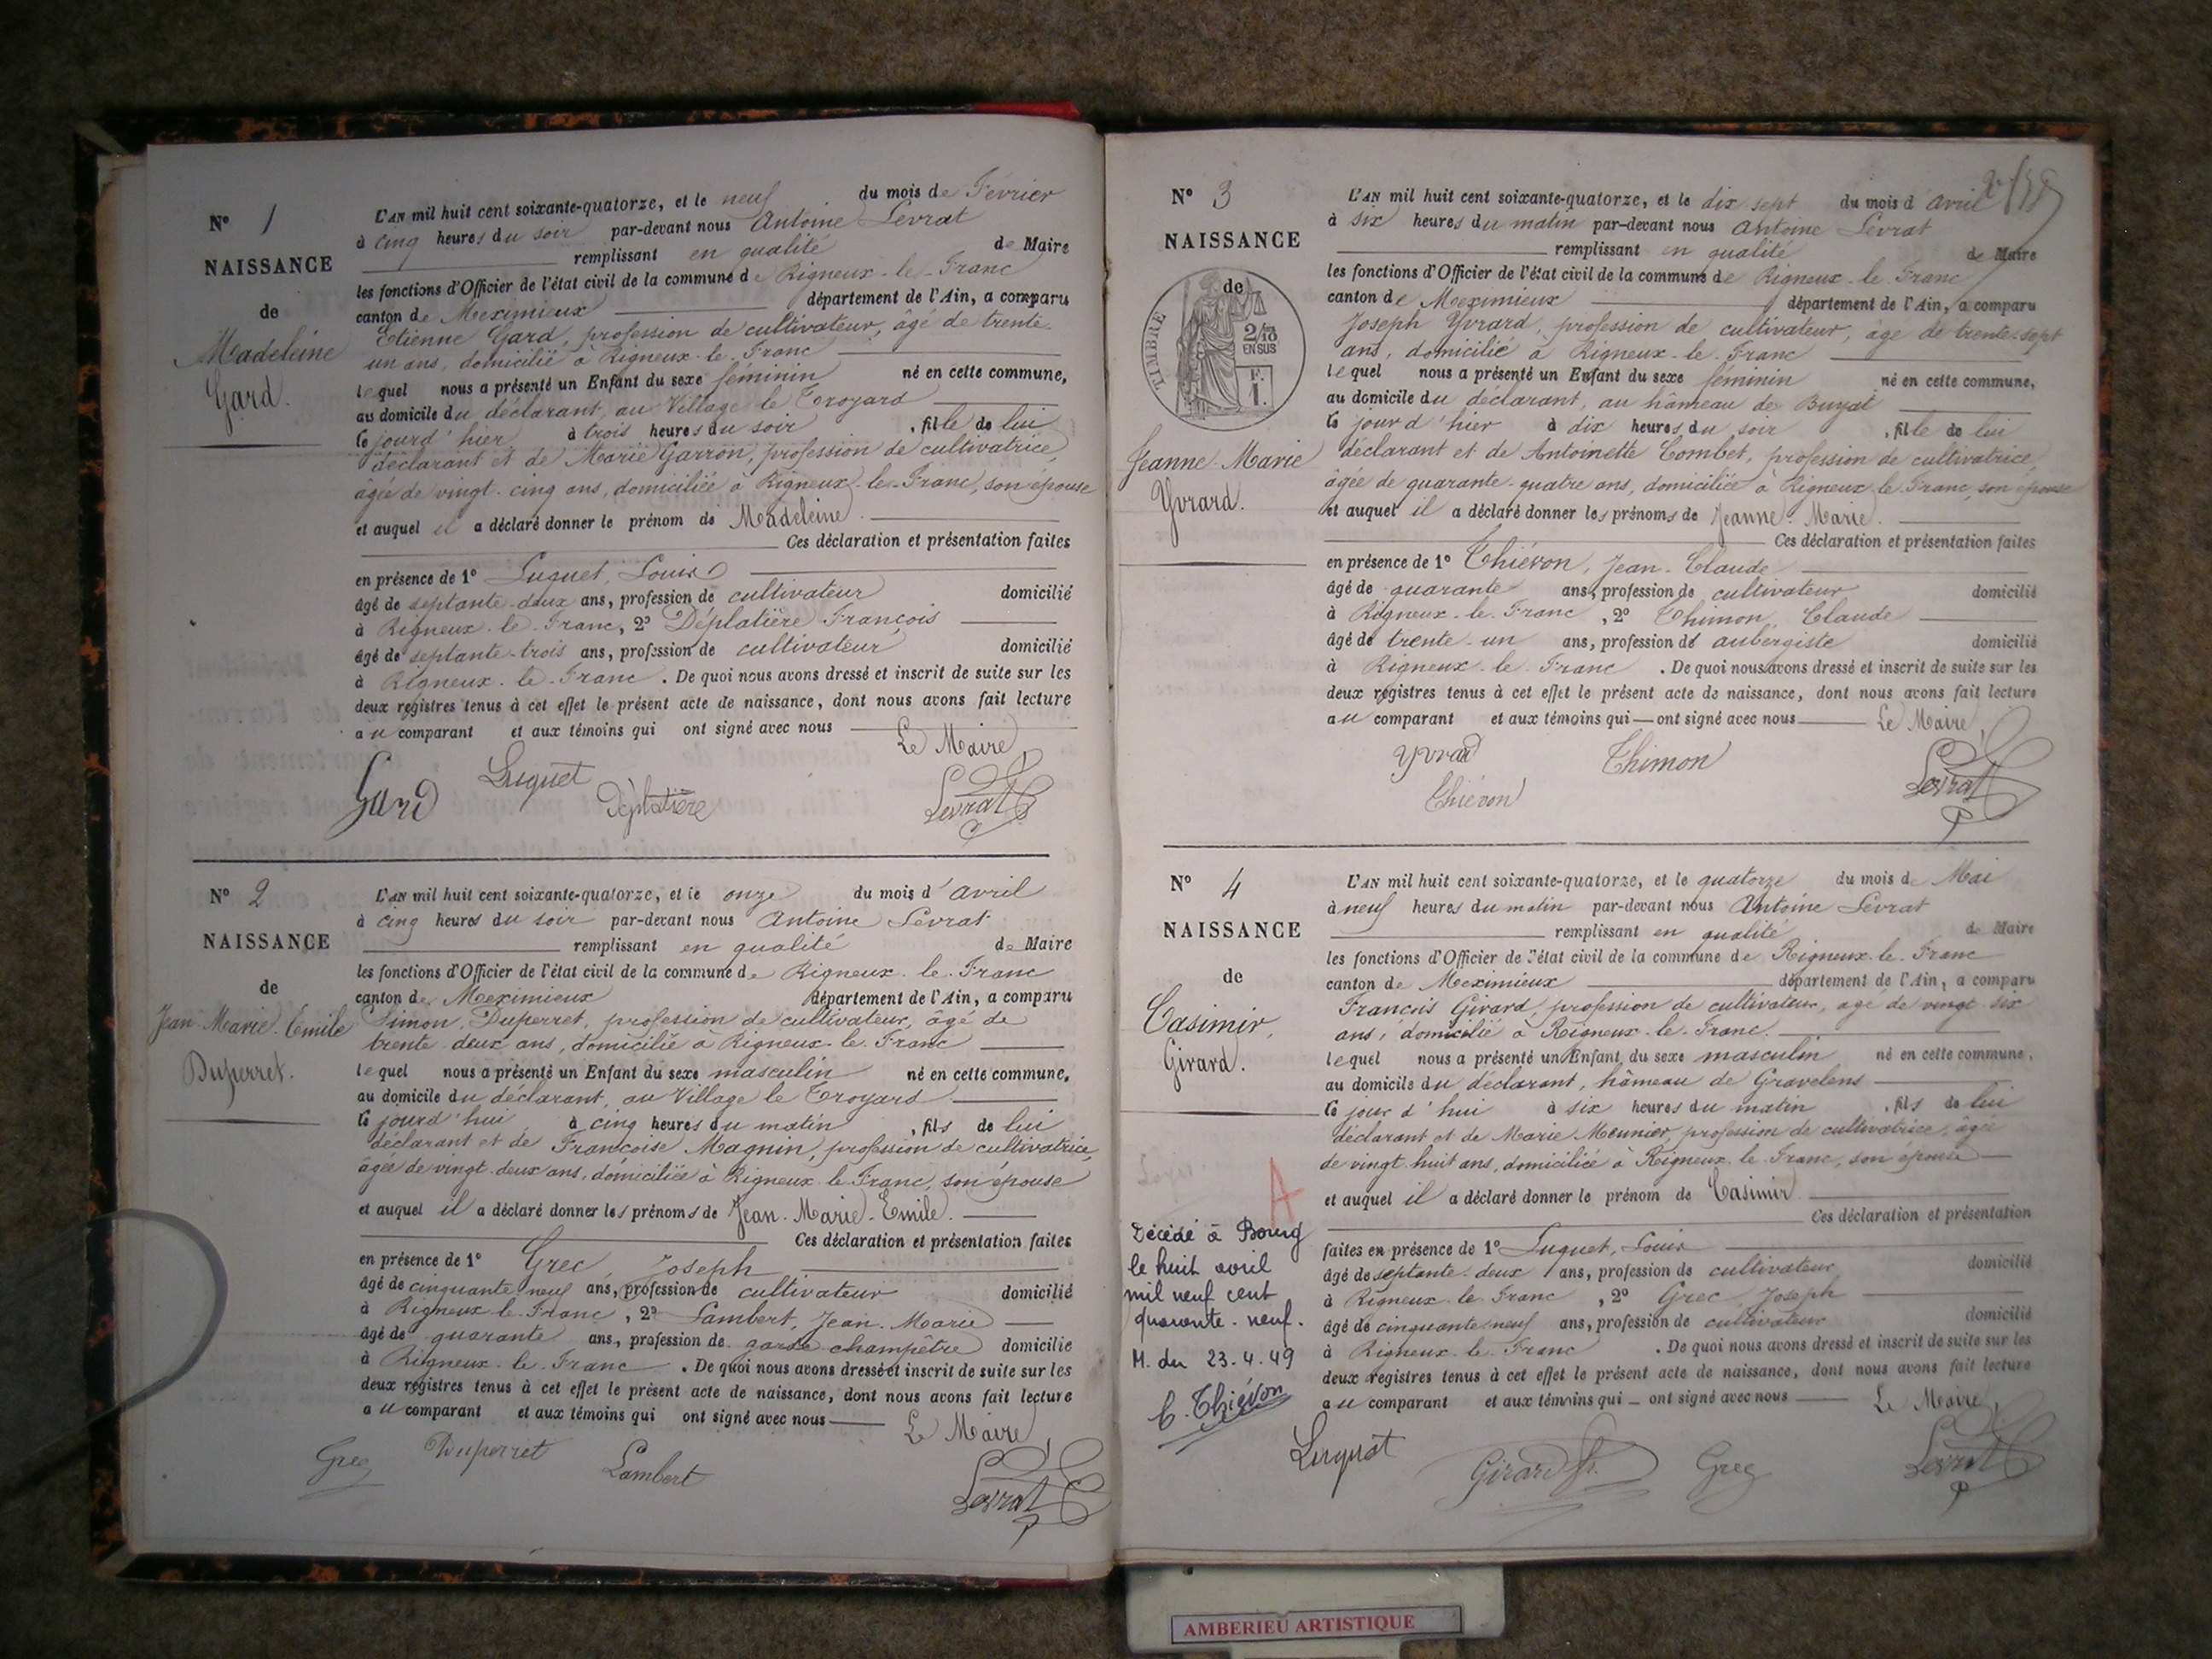 N° 1
NAISSANCE
de
Madeleine
Gard.
L'AN mil huit cent soixante-quatorze, et le neuf du mois de Février
à cinq heures du soir par-devant nous Antoine Levrat
remplissant en qualité de Maire
les fonctions d'Officier de l'état civil de la commune de Rigneux-le-Franc
canton de Meximieux département de l'Ain, a comparu
Etienne Gard, profession de cultivateur, âgé de trente-
un ans, domicilié à Rigneux-le-Franc
lequel nous a présenté un Enfant du sexe féminin né en cette commune,
au domicile du déclarant, au Village le Troyard
le jourd'hier à trois heures du soir, fille de lui
déclarant et de Marie Garron, profession de cultivatrice,
âgée de vingt-cinq ans, domiciliée à Rigneux-le-Franc, son épouse
et auquel il a déclaré donner le prénom de Madeleine.
Ces déclaration et présentation faites
en présence de 1° Luquet, Louis
âgé de septante-deux ans, profession de cultivateur domicilié
à Rigneux-le-Franc, 2° Déplatière François
âgé de septante-trois ans, profession de cultivateur domicilié
à Rigneux-le-Franc. De quoi nous avons dressé et inscrit de suite sur les
deux registres tenus à cet effet le présent acte de naissance, dont nous avons fait lecture
au comparant et aux témoins qui ont signé avec nous
Le Maire,
Gard Luquet Déplatière Levrat
N° 2
NAISSANCE
de
Jean-Marie-Emile
Duperret.
L'AN mil huit cent soixante-quatorze, et le onze du mois d'avril
à cinq heures du soir par-devant nous Antoine Levrat
remplissant en qualité de Maire
les fonctions d'Officier de l'état civil de la commune de Rigneux-le-Franc
canton de Meximieux département de l'Ain, a comparu
Simon, Duperret, profession de cultivateur, âgé de
trente-deux ans, domicilié à Rigneux-le-Franc
lequel nous a présenté un Enfant du sexe masculin né en cette commune,
au domicile du déclarant, au Village le Troyard
le jourd'hui à cinq heures du matin, fils de lui
déclarant et de Françoise Magnin, profession de cultivatrice,
âgée de vingt-deux ans, domiciliée à Rigneux-le-Franc, son épouse
et auquel il a déclaré donner les prénoms de Jean-Marie-Emile.
Ces déclaration et présentation faites
en présence de 1° Grec, Joseph
âgé de cinquante neuf ans, profession de cultivateur domicilié
à Rigneux-le-Franc, 2° Lambert, Jean-Marie
âgé de quarante ans, profession de garde-champêtre domicilié
à Rigneux-le-Franc. De quoi nous avons dressé et inscrit de suite sur les
deux registres tenus à cet effet le présent acte de naissance, dont nous avons fait lecture
au comparant et aux témoins qui ont signé avec nous
Le Maire,
Grec Duperret Lambert Levrat
N° 3
NAISSANCE
de
TIMBRE
2/10
EN SUS
F.
1.
Jeanne-Marie
Yvrard.
L'AN mil huit cent soixante-quatorze, et le dix sept du mois d'avril
à six heures du matin par-devant nous Antoine Levrat
remplissant en qualité de Maire
les fonctions d'Officier de l'état civil de la commune de Rigneux-le-Franc
canton de Meximieux département de l'Ain, a comparu
Joseph Yvrard, profession de cultivateur, âgé de trente-sept
ans, domicilié à Rigneux-le-Franc
lequel nous a présenté un Enfant du sexe féminin né en cette commune,
au domicile du déclarant, au hâmeau de Buyat
le jour d'hier à dix heures du soir, fille de lui
déclarant et de Antoinette Combet, profession de cultivatrice,
âgée de quarante-quatre ans, domiciliée à Rigneux-le-Franc, son épouse
et auquel il a déclaré donner les prénoms de Jeanne-Marie.
Ces déclaration et présentation faites
en présence de 1° Thiévon, Jean-Claude
âgé de quarante ans, profession de cultivateur domicilié
à Rigneux-le-Franc, 2° Thimon, Claude
âgé de trente-un ans, profession de aubergiste domicilié
à Rigneux-le-Franc. De quoi nous avons dressé et inscrit de suite sur les
deux registres tenus à cet effet le présent acte de naissance, dont nous avons fait lecture
au comparant et aux témoins qui ont signé avec nous Le Maire,
Yvrard Thimon
Thiévon Levrat
N° 4
NAISSANCE
de
Casimir,
Girard.
L'AN mil huit cent soixante-quatorze, et le quatorze du mois de Mai
à neuf heures du matin par-devant nous Antoine Levrat
remplissant en qualité de Maire
les fonctions d'Officier de l'état civil de la commune de Rigneux-le-Franc
canton de Meximieux département de l'Ain, a comparu
François Girard, profession de cultivateur, âgé de vingt-six
ans, domicilié à Rigneux-le-Franc.
lequel nous a présenté un Enfant du sexe masculin né en cette commune,
au domicile du déclarant, hâmeau de Gravelens
le jour d'hui à six heures du matin, fils de lui
déclarant et de Marie Meunier, profession de cultivatrice, âgée
de vingt-huit ans, domiciliée à Rigneux-le-Franc, son épouse
et auquel il a déclaré donner le prénom de Casimir.
Ces déclaration et présentation
faites en présence de 1° Luquet, Louis
âgé de septante-deux ans, profession de cultivateur domicilié
à Rigneux-le-Franc, 2° Grec, Joseph
âgé de cinquante neuf ans, profession de cultivateur domicilié
à Rigneux-le-Franc. De quoi nous avons dressé et inscrit de suite sur les
deux registres tenus à cet effet le présent acte de naissance, dont nous avons fait lecture
au comparant et aux témoins qui ont signé avec nous Le Maire,
Luquet Girard fr. Grec Levrat
A
Décédé à Bourg
le huit avril
mil neuf cent
quarante-neuf.
M. du 23.4.49
C. Thiévon
AMBERIEU ARTISTIQUE